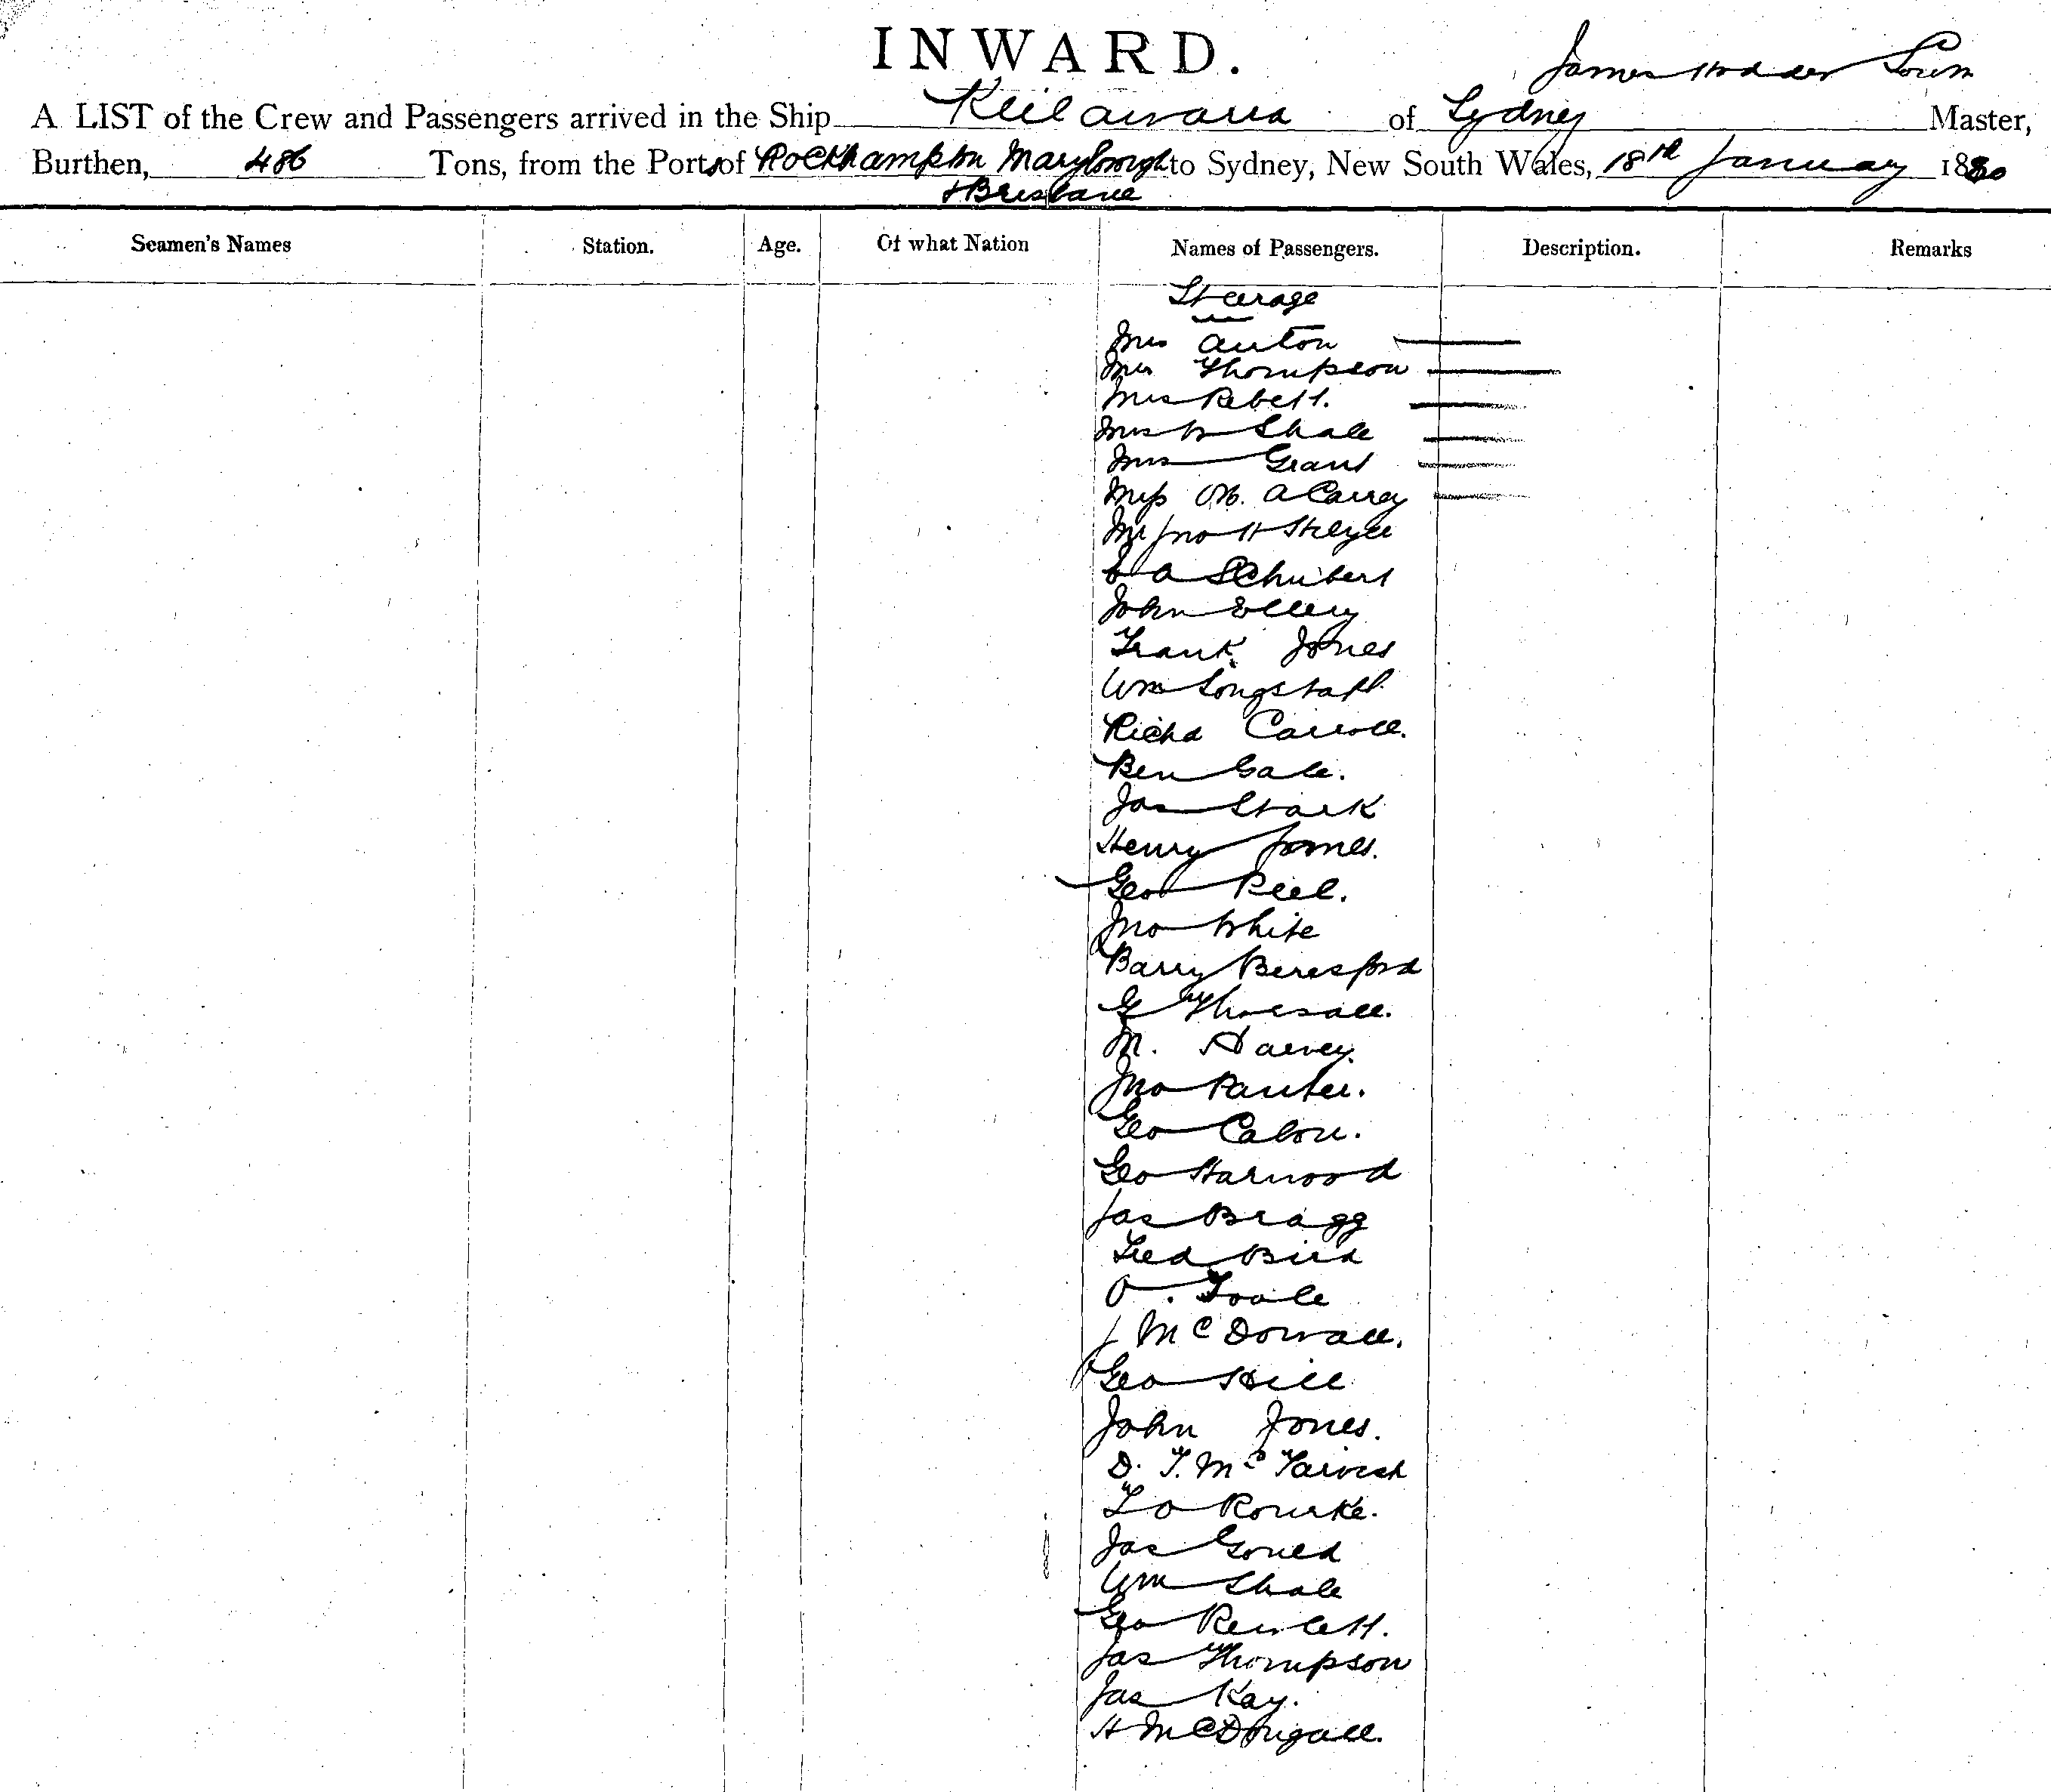 INWARD.
James
A LIST of the Crew and Passengers arrived in the Ship Keilawarra of Sydney Master,
Burthen, 486 Tons, from the Ports of Rockhampton Maryborough to Sydney, New South Wales, 18th January 1880
& Brisbane
Seamen's Names Station. Age. Of what Nation Names of Passengers. Description. Remarks
Steerage
Mrs Anton
Mrs Thompson
Mrs
Mrs W Shale
Mrs Grant
Miss M. A Carey
Mr Jno H
A Schubert
John Ellery
Frank Jones
Wm Longstaff
Richd Carroll.
Ben Gale.
Jas Stark
Henry James.
Geo Peel.
Jno White
Barry Beresford
G
M. Harvey.
Jno Panter.
Geo
Geo Harwood
Jas Bragg
Fred Bird
O. Toole
J McDowall.
Geo Hill
John Jones.
D. T. Mc Tavish
T O Rourke.
Jas Gould
Wm Shale
Geo
Jas Thompson
Jas Kay.
H McDougall.